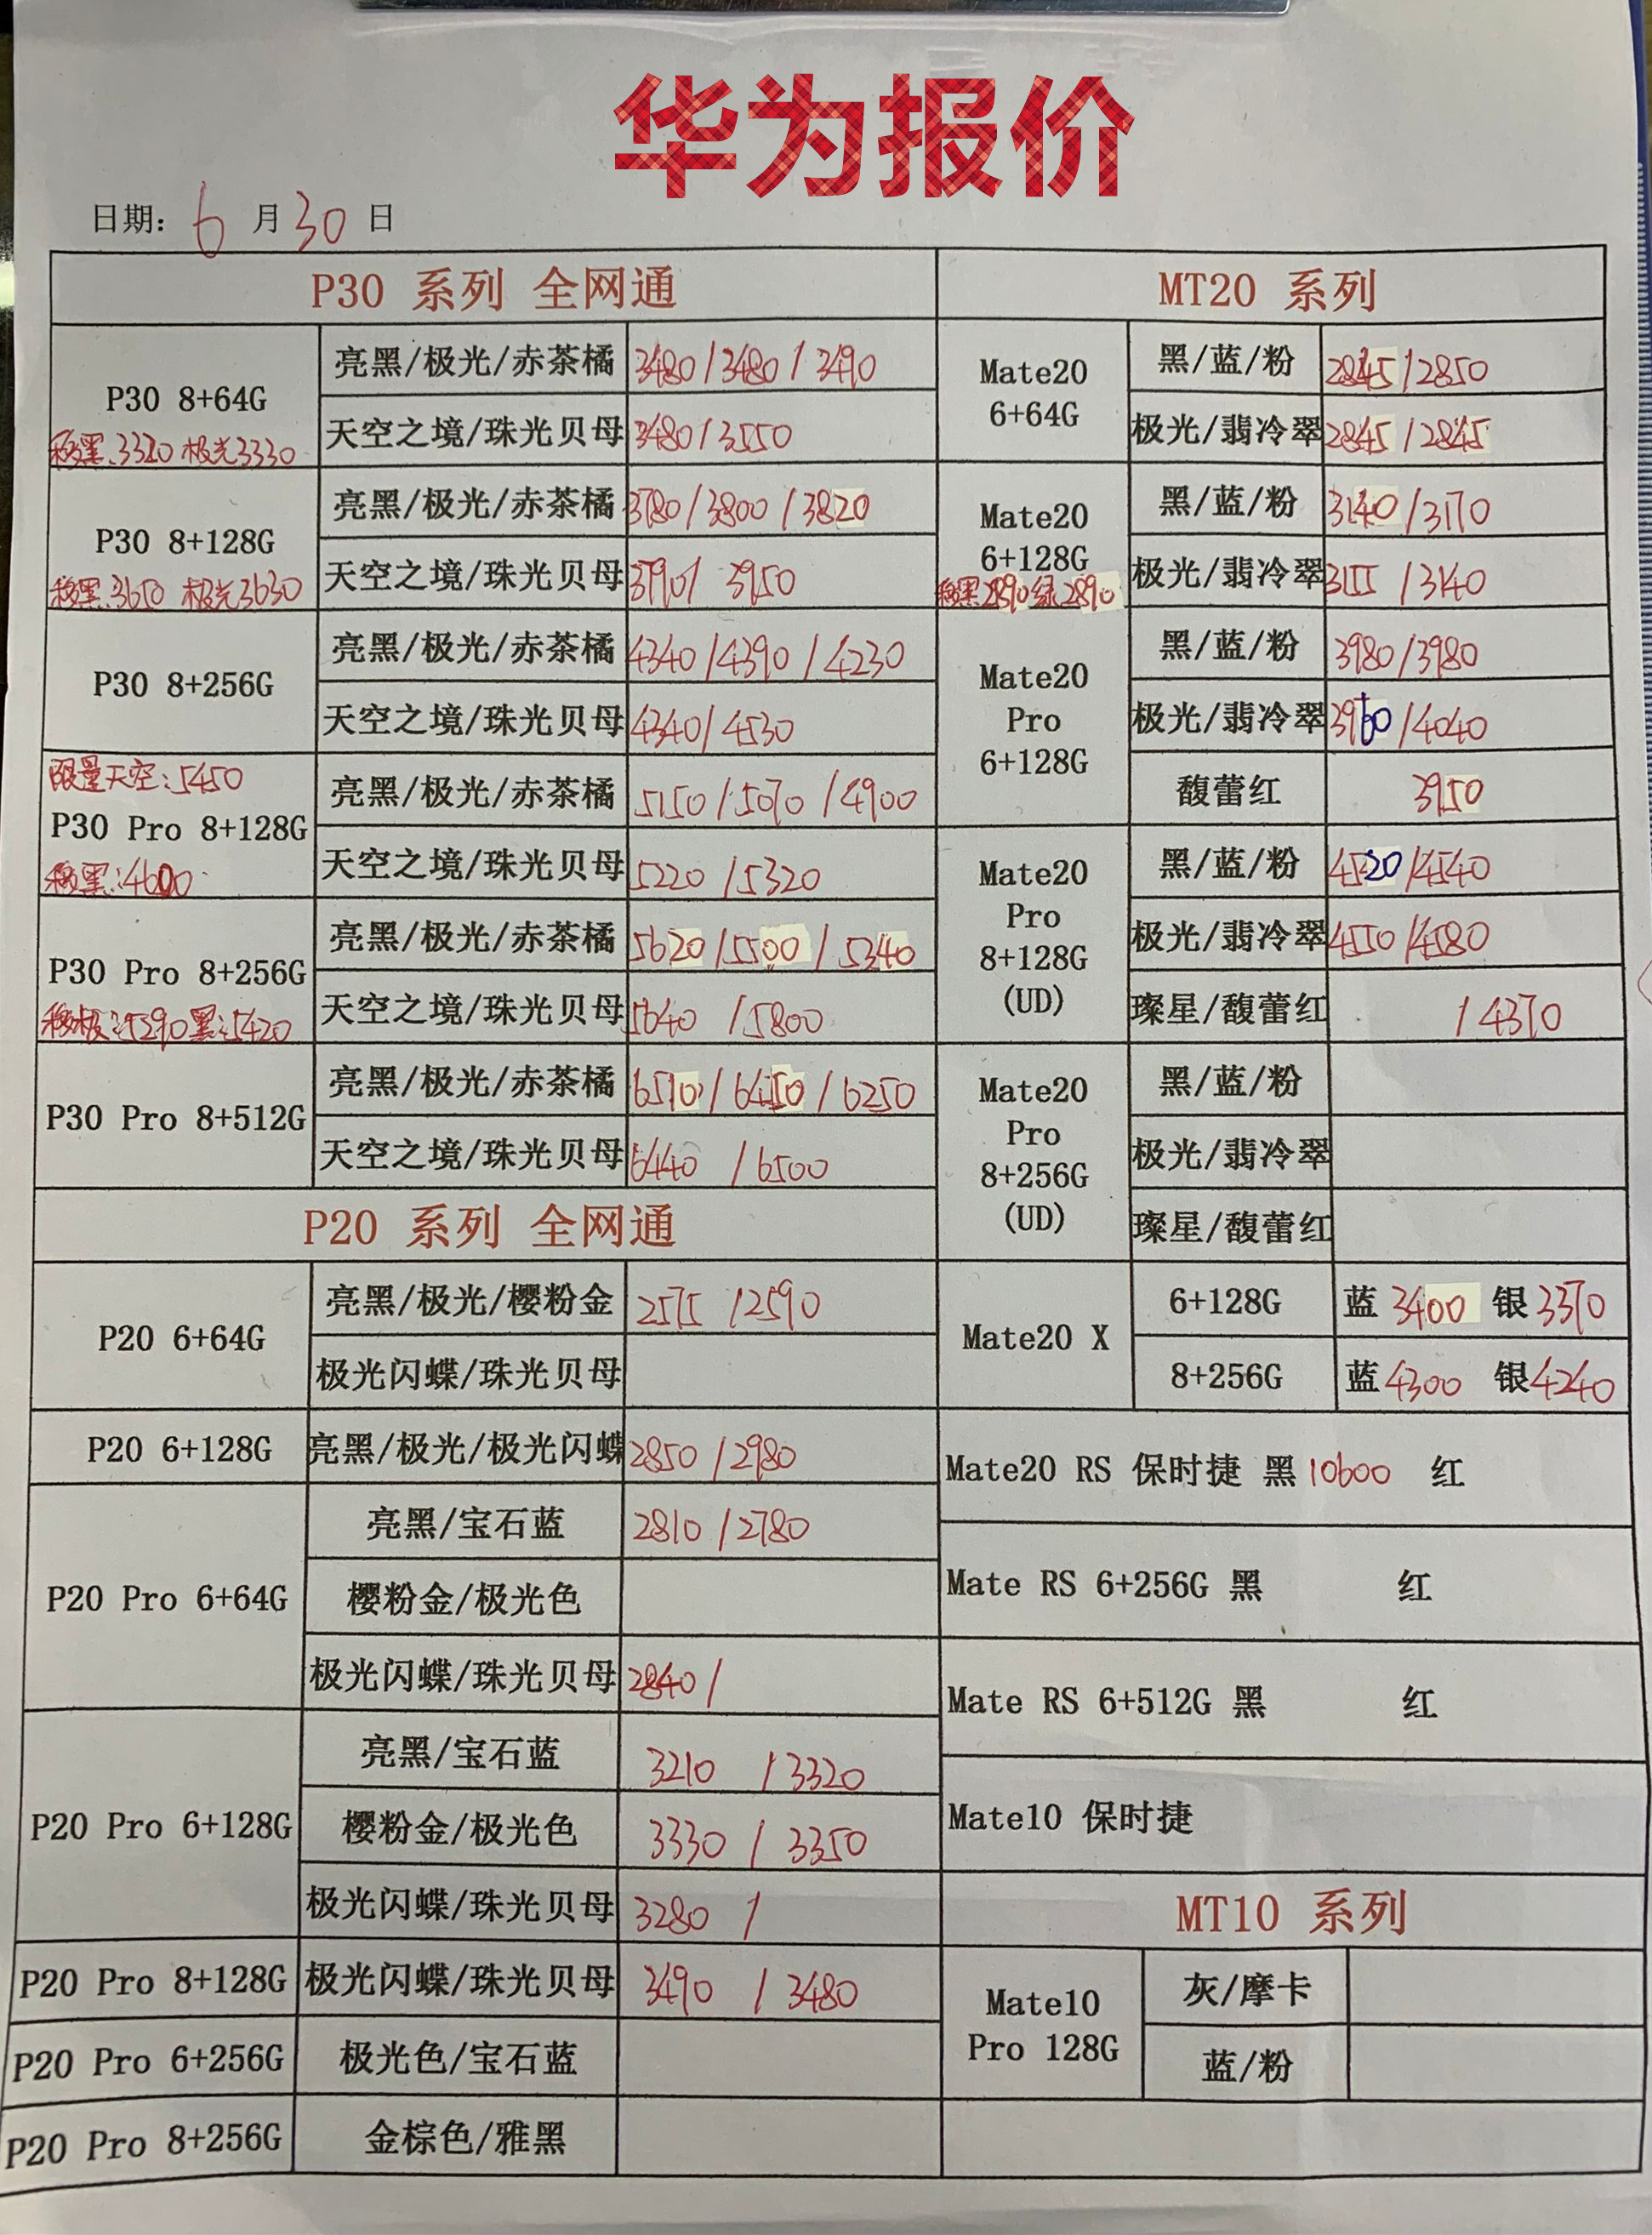 华为报价
日期: 6 月 30 日
P30 系列 全网通
P30 8+64G
移黑:3320 极光3330
亮黑/极光/赤茶橘 3480/3480/3490
天空之境/珠光贝母 3480/3550
P30 8+128G
移黑:3650 极光3630
亮黑/极光/赤茶橘 3780/3800/3820
天空之境/珠光贝母 3790/3950
P30 8+256G
亮黑/极光/赤茶橘 4340/4390/4230
天空之境/珠光贝母 4340/4530
限量天空:5450
P30 Pro 8+128G
移黑:4600
亮黑/极光/赤茶橘 5150/5070/4900
天空之境/珠光贝母 5220/5320
P30 Pro 8+256G
移极:5290黑:5420
亮黑/极光/赤茶橘 5620/5500/5340
天空之境/珠光贝母 5640/5800
P30 Pro 8+512G
亮黑/极光/赤茶橘 6510/6450/6250
天空之境/珠光贝母 6440/6500
P20 系列 全网通
P20 6+64G
亮黑/极光/樱粉金 2575/2590
极光闪蝶/珠光贝母
P20 6+128G
亮黑/极光/极光闪蝶 2850/2980
P20 Pro 6+64G
亮黑/宝石蓝 2810/2780
樱粉金/极光色
极光闪蝶/珠光贝母 2840/
P20 Pro 6+128G
亮黑/宝石蓝 3210/3320
樱粉金/极光色 3330/3350
极光闪蝶/珠光贝母 3280/
P20 Pro 8+128G
极光闪蝶/珠光贝母 3490/3480
P20 Pro 6+256G
极光色/宝石蓝
P20 Pro 8+256G
金棕色/雅黑
MT20 系列
Mate20
6+64G
黑/蓝/粉 2845/2850
极光/翡冷翠 2845/2845
Mate20
6+128G
移黑2890绿2890
黑/蓝/粉 3140/3170
极光/翡冷翠 3155/3140
Mate20
Pro
6+128G
黑/蓝/粉 3980/3980
极光/翡冷翠 3960/4040
馥蕾红 3950
Mate20
Pro
8+128G
(UD)
黑/蓝/粉 4520/4540
极光/翡冷翠 4550/4580
璨星/馥蕾红 /4370
Mate20
Pro
8+256G
(UD)
黑/蓝/粉
极光/翡冷翠
璨星/馥蕾红
Mate20 X
6+128G 蓝 3400 银 3370
8+256G 蓝 4300 银 4240
Mate20 RS 保时捷 黑 10600 红
Mate RS 6+256G 黑 红
Mate RS 6+512G 黑 红
Mate10 保时捷
MT10 系列
Mate10
Pro 128G
灰/摩卡
蓝/粉